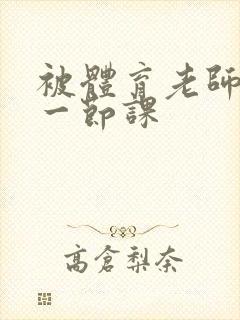 被體育老師
一節課
高倉梨奈